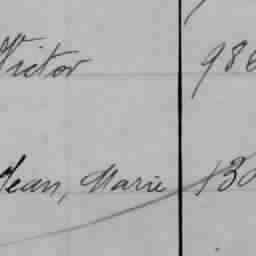 Victor 986
Jean, Marie 130